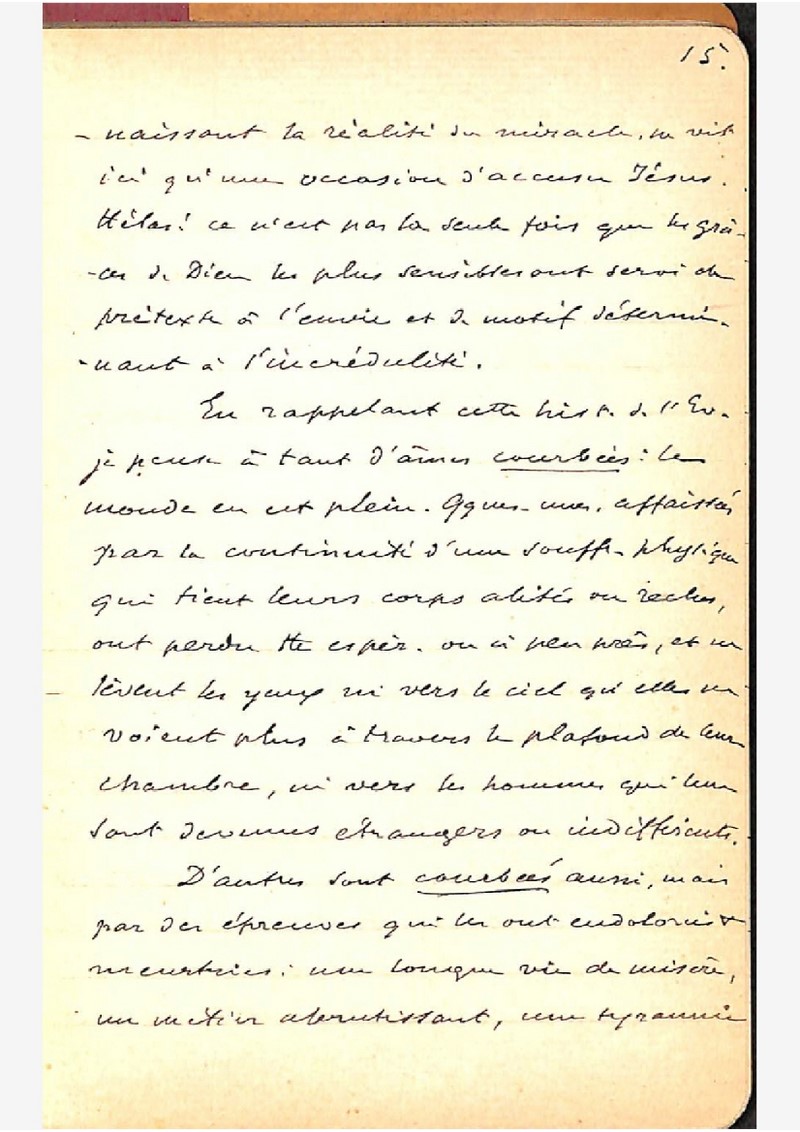 15.
- naissant la réalité du miracle, ne vit
ici qu'une occasion d'accuser Jésus.
Hélas! ce n'est pas la seule fois que les grâ-
-ces de Dieu les plus sensibles ont servi de
prétexte à l'envie et de motif détermi-
-nant à l'incrédulité.
En rappelant cette hist. de l'Ev.
je pense à tant d'âmes courbées : le
monde en est plein. Qques-unes, affaissées
par la continuité d'une souffr. physique
qui tient leurs corps alités ou reclus,
ont perdu tte espér. ou à peu près, et ne
lèvent les yeux ni vers le ciel qu'elles ne
voient plus à travers le plafond de leur
chambre, ni vers les hommes qui leur
sont devenus étrangers ou indifférents.
D'autres sont courbées aussi, mais
par des épreuves qui les ont endolories &
meurtries : une longue vie de misère,
un métier abrutissant, une tyrannie